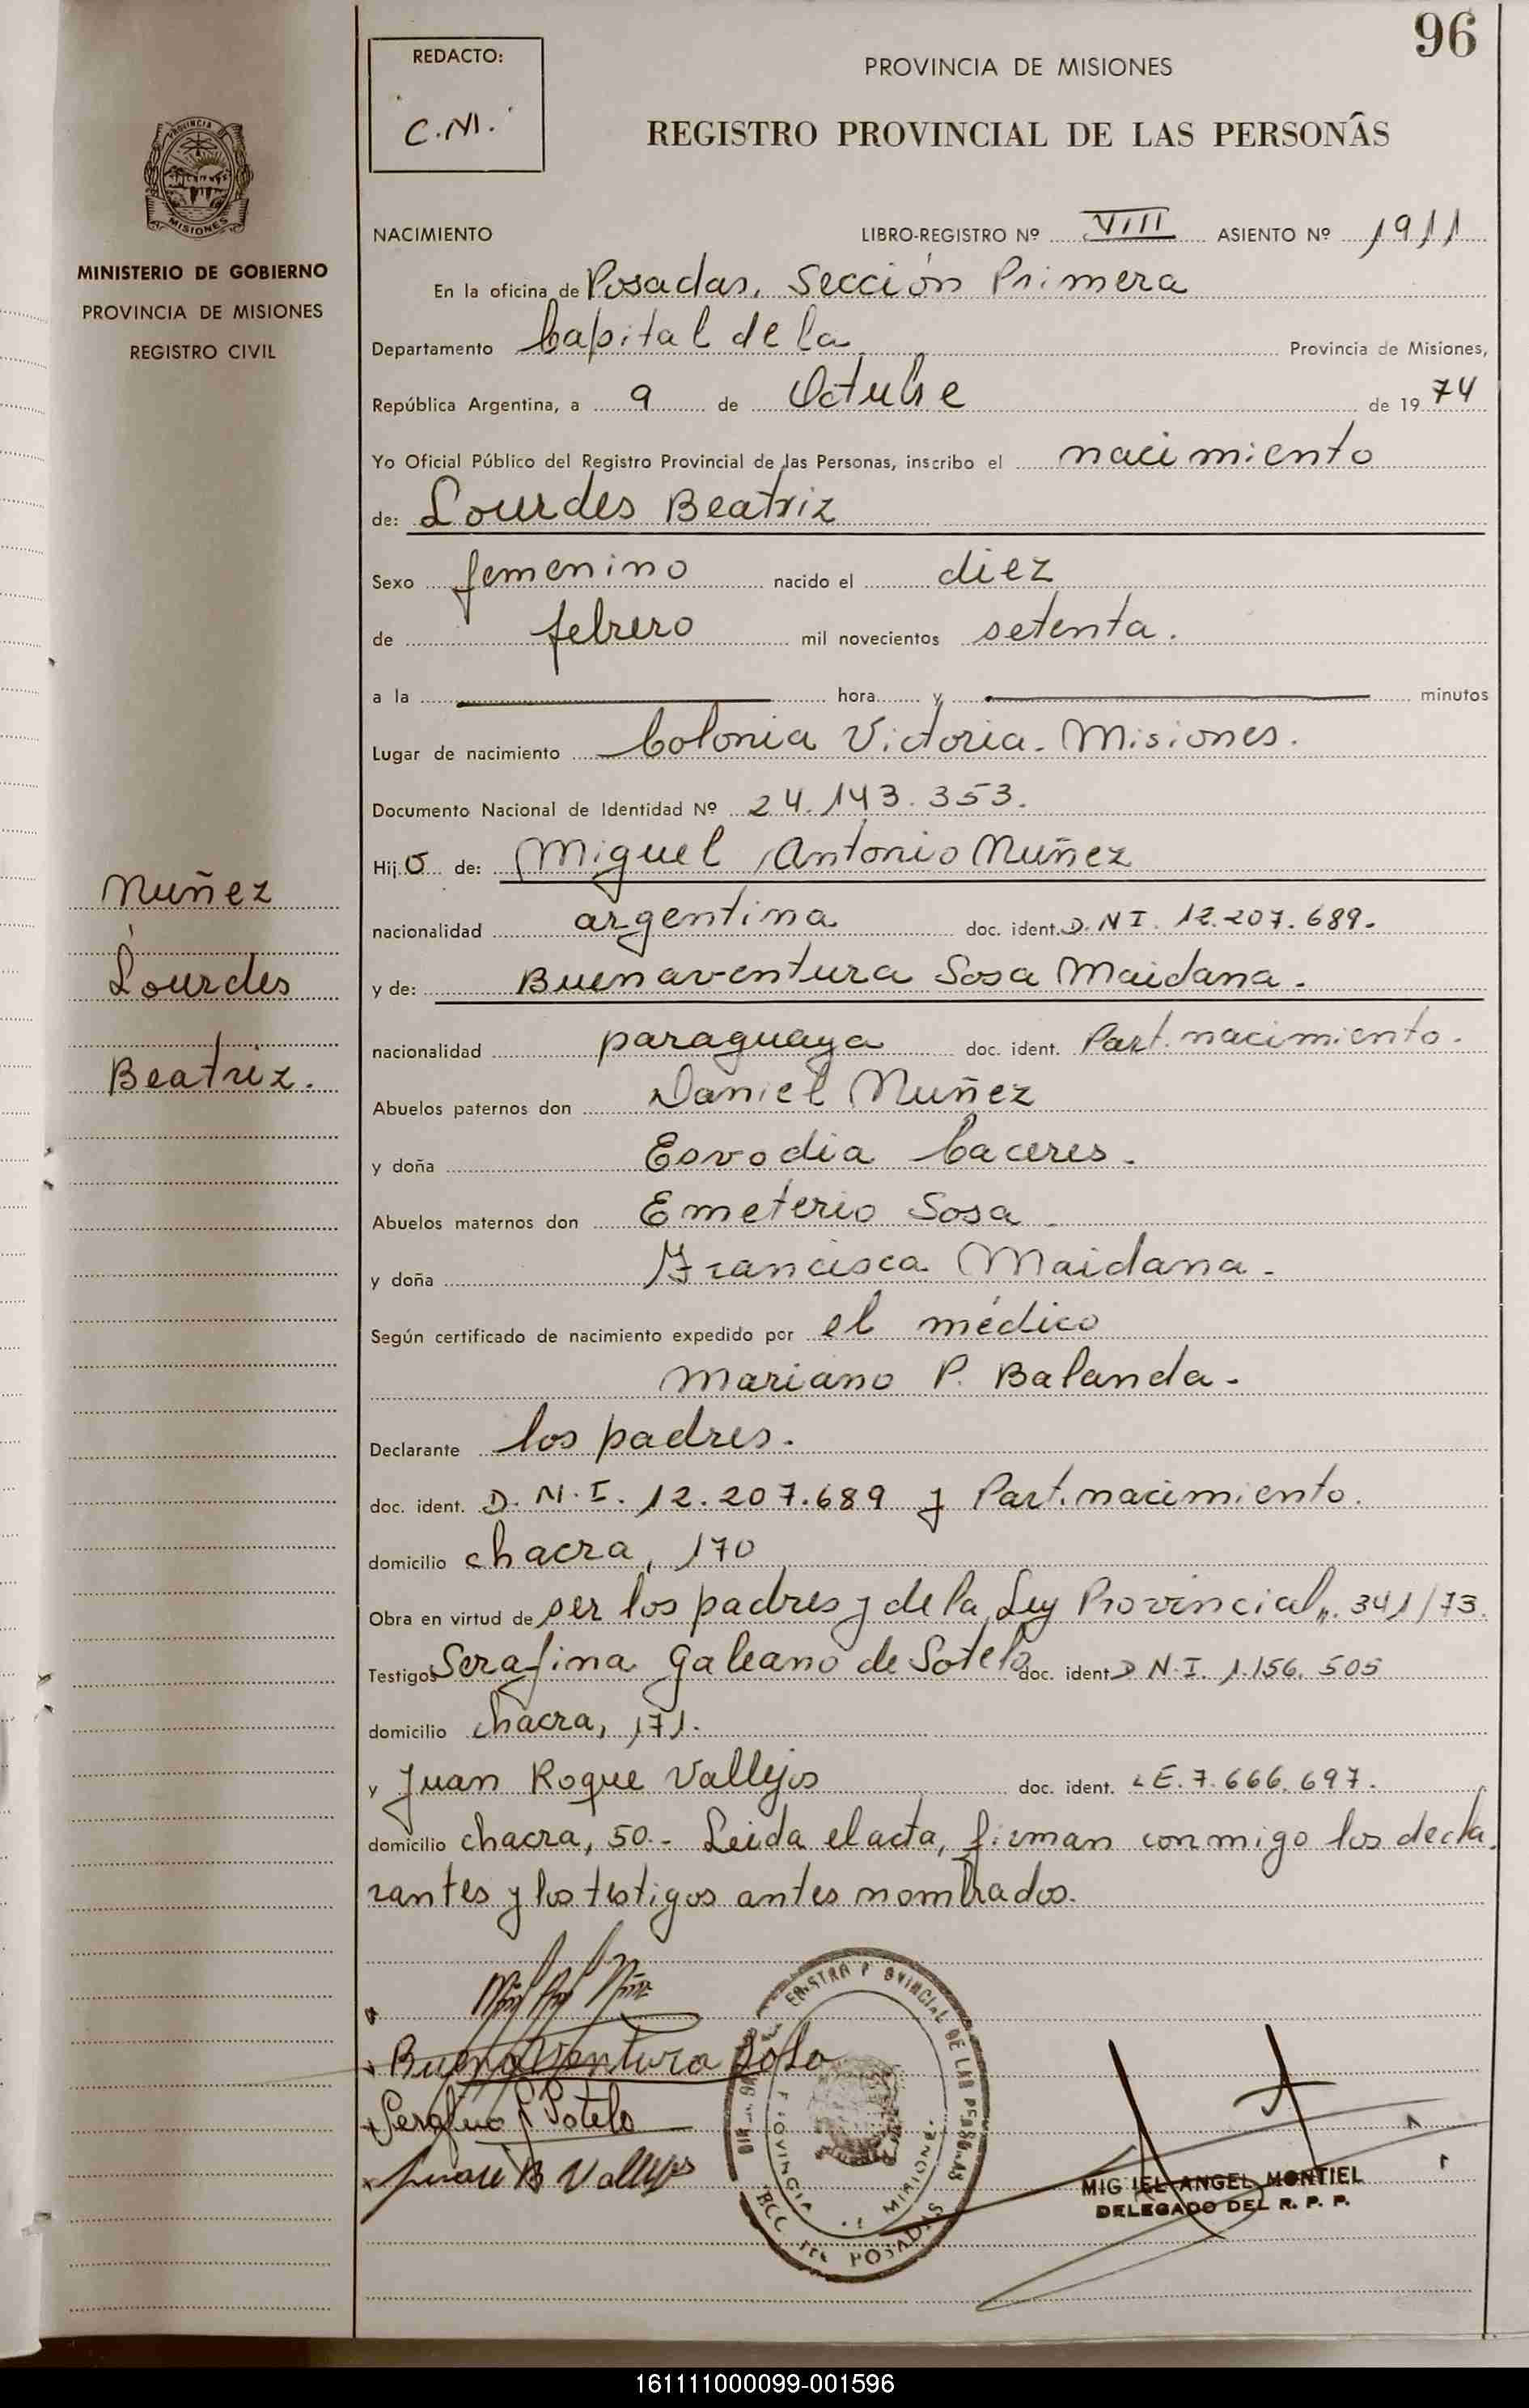 96
REDACTO:
C.M.
PROVINCIA DE MISIONES
REGISTRO PROVINCIAL DE LAS PERSONAS
MISIONES
MINISTERIO DE GOBIERNO
PROVINCIA DE MISIONES
REGISTRO CIVIL
NACIMIENTO LIBRO-REGISTRO Nº VIII ASIENTO Nº 1911
En la oficina de Posadas, Sección Primera
Departamento Capital de la Provincia de Misiones,
República Argentina, a 9 de Octubre de 1974
Yo Oficial Público del Registro Provincial de las Personas, inscribo el nacimiento
de: Lourdes Beatriz
Sexo femenino nacido el diez
de febrero mil novecientos setenta.
a la hora y minutos
Lugar de nacimiento Colonia Victoria - Misiones.
Documento Nacional de Identidad Nº 24.143.353.
Hijo de: Miguel Antonio Nuñez
nacionalidad argentina doc. ident. D.N I. 12.207.689.
y de: Buenaventura Sosa Maidana.
nacionalidad paraguaya doc. ident. Part. nacimiento.
Abuelos paternos don Daniel Nuñez
y doña Esvodia Caceres.
Abuelos maternos don Emeterio Sosa
y doña Francisca Maidana -
Según certificado de nacimiento expedido por el médico
Mariano P. Balanda -
Declarante los padres.
doc. ident. D.N.I. 12.207.689 y Part. nacimiento.
domicilio chacra, 170
Obra en virtud de ser los padres y de la Ley Provincial n. 341/73.
Testigos Serafina Galeano de Sotelo doc. ident. D N.I. 1.156.505
domicilio chacra, 171.
y Juan Roque Vallejos doc. ident. LE. 7.666.697.
domicilio chacra, 50.- Leida el acta, firman conmigo los decla
rantes y los testigos antes nombrados.
Nuñez
Lourdes
Beatriz.
Buenaventura Sosa
Serafina G Sotelo
Juan R Vallejos
PROVINCIAL DE LAS PERSONAS
POSADAS
MIGUEL ANGEL MONTIEL
DELEGADO DEL R. P. P.
161111000099-001596